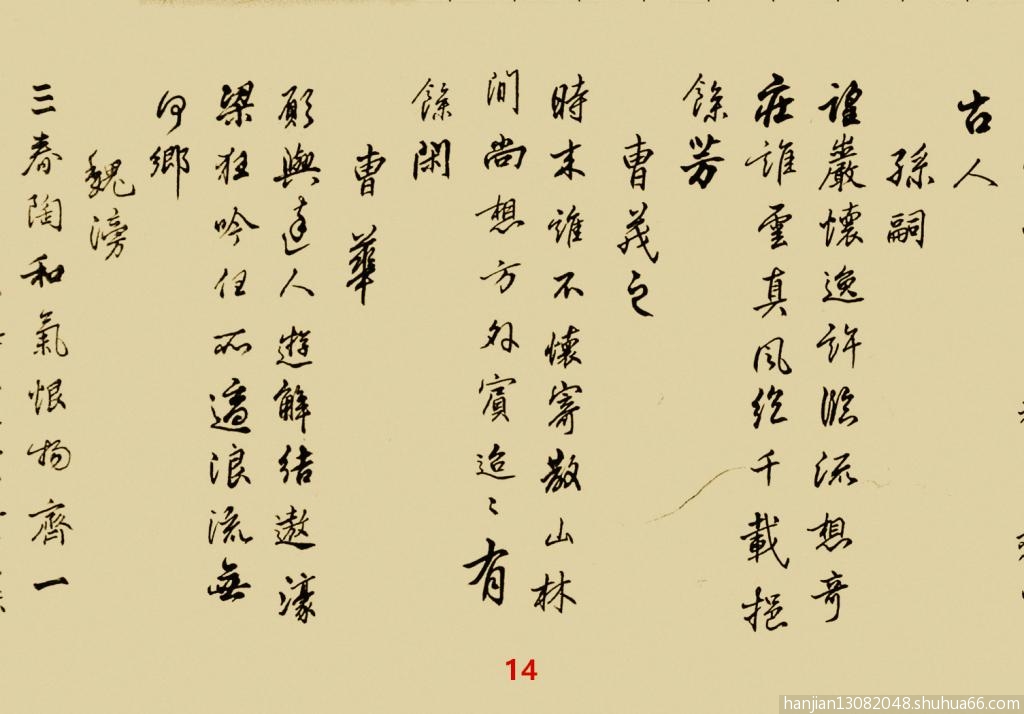 古人
孫嗣
望巖懷逸許臨流想奇
莊誰雲真風絶千載挹
餘芳
曹茂之
時来誰不懷寄散山林
間尚想方外賓迢〻有
餘閑
曹華
願與達人遊解結遨濠
梁狂吟任所適浪流無
何鄉
魏滂
三春陶和氣恨物齊一
14
hanjian13082048.shuhua66.com